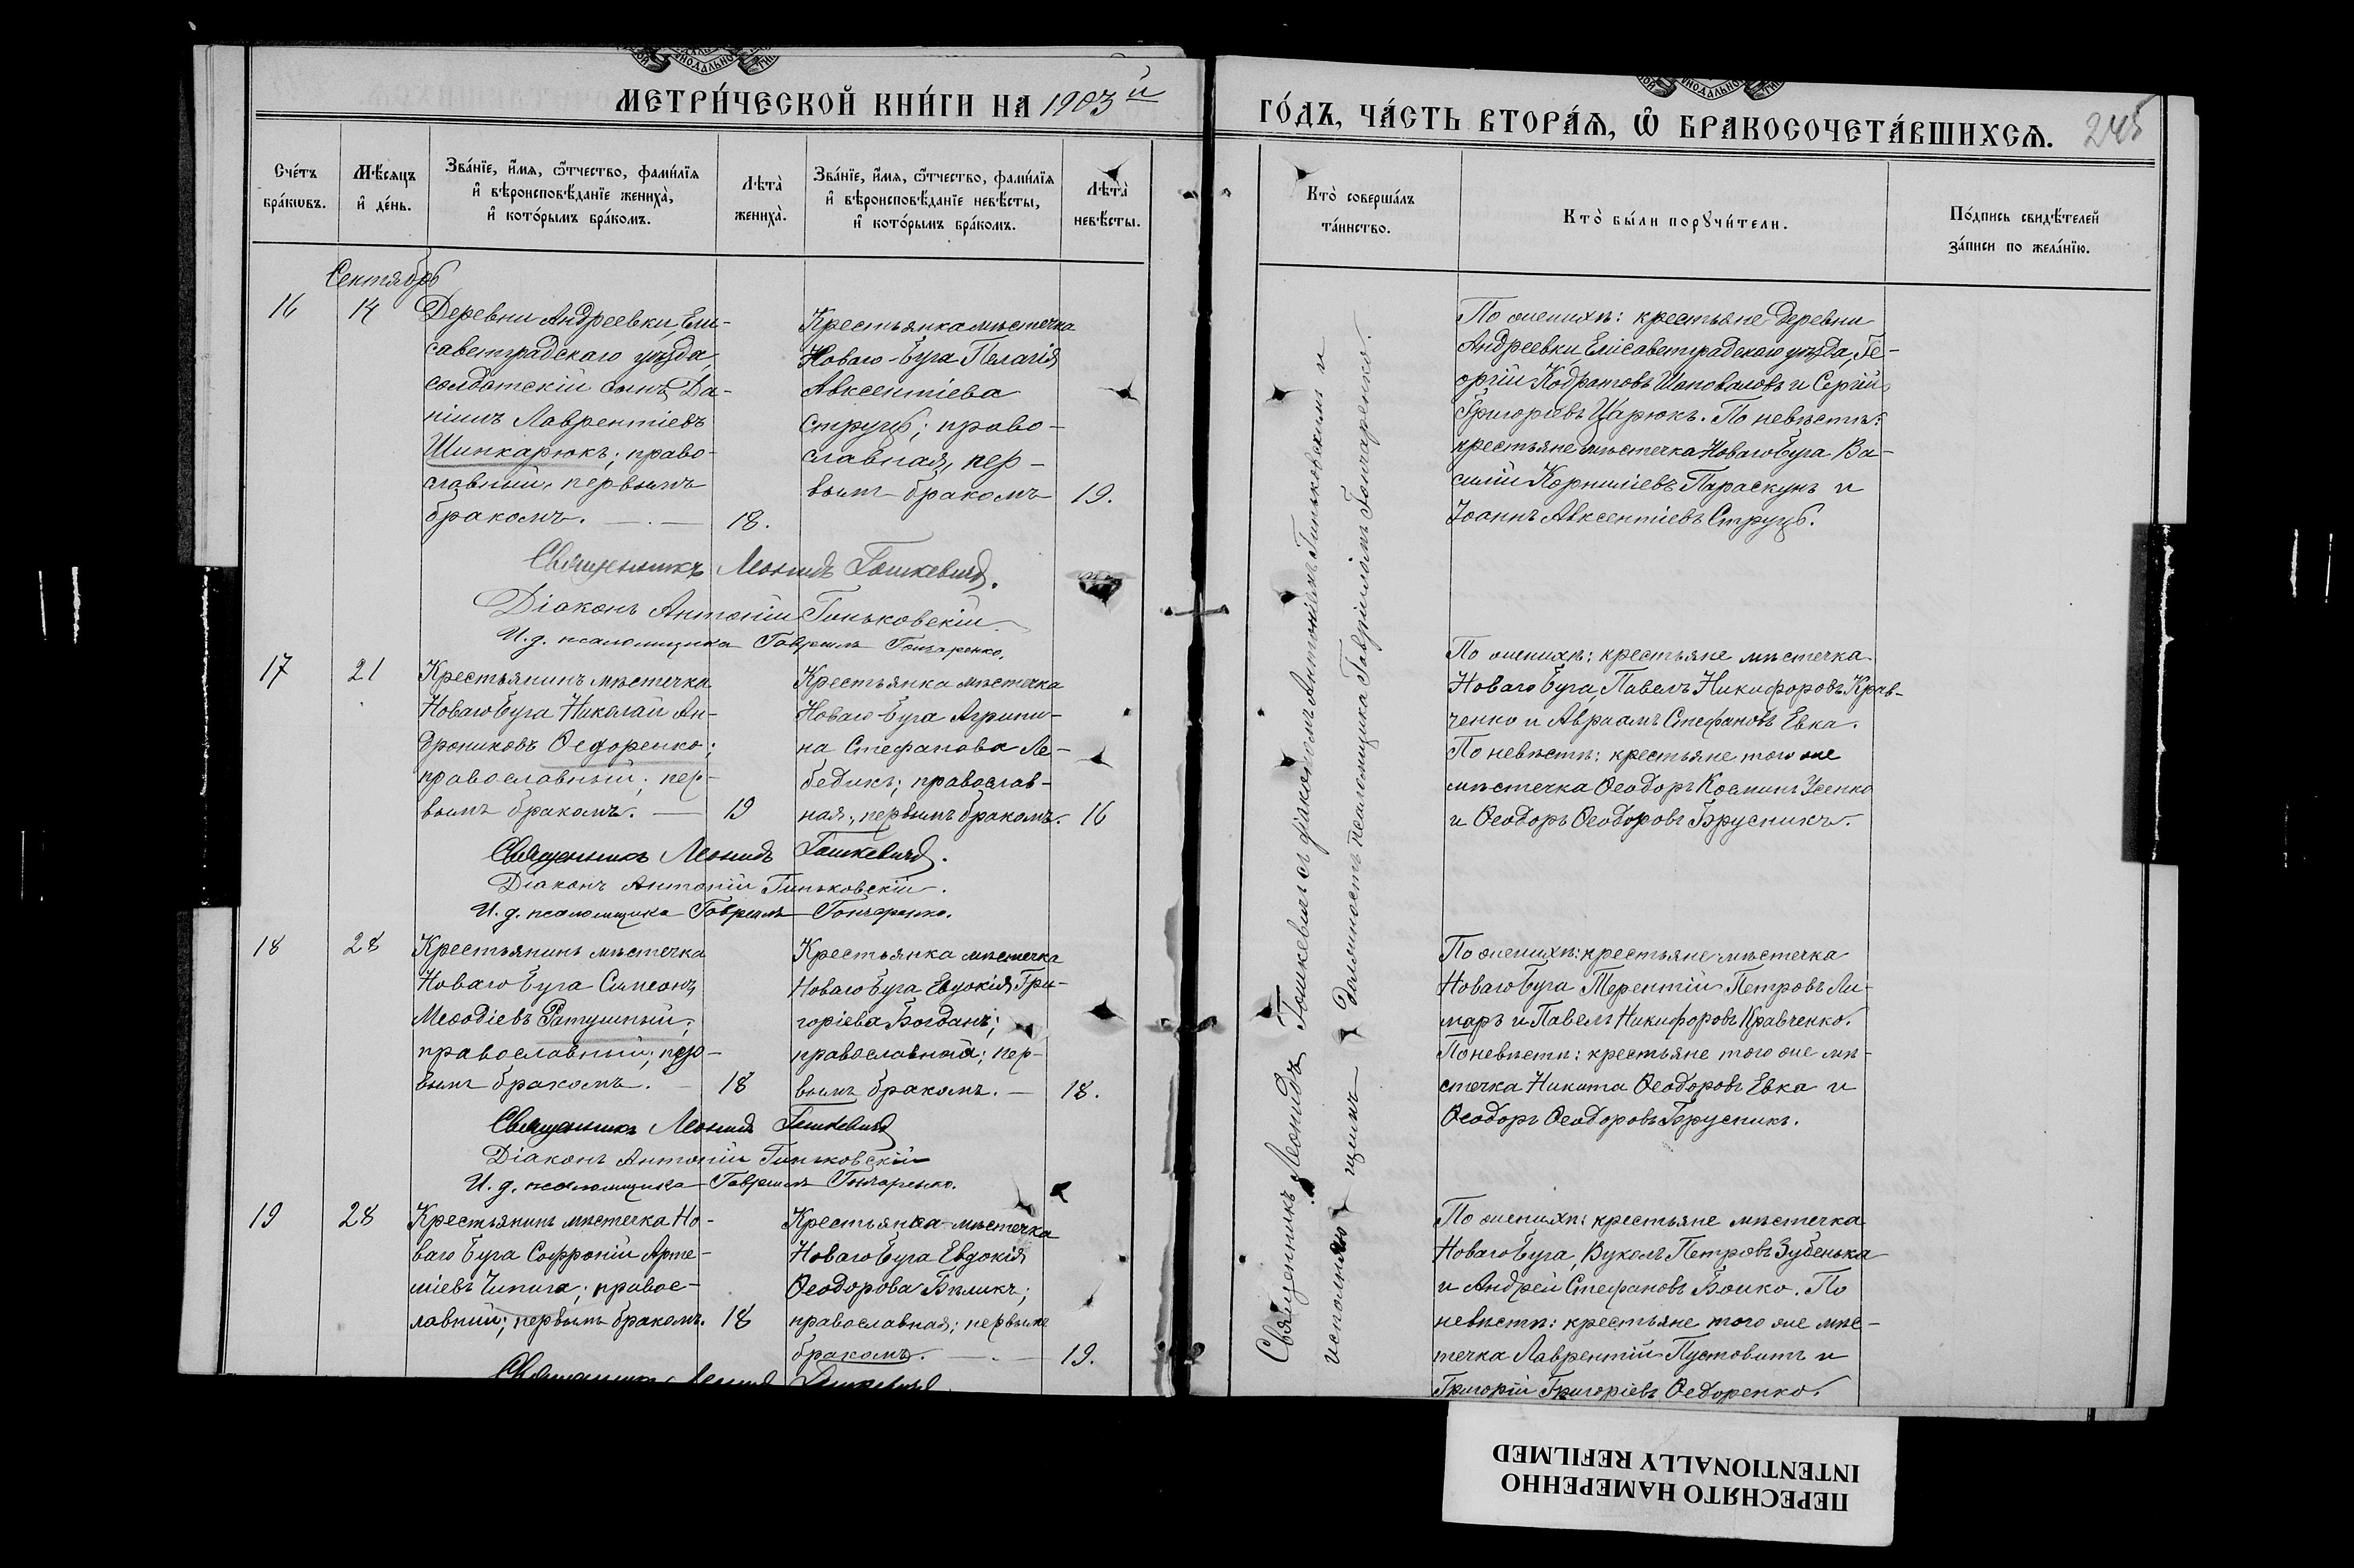 МЕТРИ́ЧЕСКОЙ КНИ́ГИ НА 1903й
ГО́ДЪ, ЧА́СТЬ ВТОРА́Я, Ѡ БРАКОСОЧЕТА́ВШИХСЯ.
245
Сче́тъ бра́ковъ.
Мѣ́сяцъ и де́нь.
Зва́нїе, и́мя, ѻ́тчество, фами́лїя
и вѣроисповѣ́данїе жениха̀,
и кото́рымъ бра́комъ.
Лѣта̀ жениха̀.
Зва́нїе, и́мя, ѻ́тчество, фами́лїя
и вѣроисповѣ́данїе невѣ́сты,
и кото́рымъ бра́комъ.
Лѣта̀ невѣ́сты.
Кто̀ соверша́лъ
та́инство.
Кто̀ бы́ли порꙋчи́тели.
По́дпись свидѣ́телей
за́писи по жела́нїю.
Сентябрь
16
14
Деревни Андреевки, Ели-
саветградскаго уѣзда,
солдатскій сынъ Да-
ніилъ Лаврентіевъ
Шинкарюкъ; право-
славный, первымъ
бракомъ.
18.
Крестьянка мѣстечка
Новаго-Буга Пелагія
Авксентіева
Струцъ; право-
славная, пер-
вымъ бракомъ
19.
По женихѣ: крестьяне деревни
Андреевки Елисаветградскаго уѣзда, Ге-
оргій Кодратовъ Шаповаловъ и Сергій
Григоріевъ Царюкъ. По невѣстѣ:
крестьяне мѣстечка Новаго Буга Ва-
силій Корниліевъ Параскунъ и
Іоаннъ Авксентіевъ Струцъ.
Священникъ Леонидъ Гошкевичъ.
Діаконъ Антоній Гиньковскій
И. д. псаломщика Гавріилъ Гончаренко.
17
21
Крестьянинъ мѣстечка
Новаго Буга Николай Ан-
дрониковъ Ѳедоренко;
православный; пер-
вымъ бракомъ.
19
Крестьянка мѣстечка
Новаго-Буга Агрипи-
на Стефанова Ле-
бедикъ; православ-
ная, первымъ бракомъ.
16
По женихѣ: крестьяне мѣстечка
Новаго Буга, Павелъ Никифоровъ Крав-
ченко и Авраамъ Стефановъ Евка.
По невѣстѣ: крестьяне того же
мѣстечка Ѳеодоръ Косминъ Усенко
и Ѳеодоръ Ѳеодоровъ Брусникъ.
Священникъ Леонидъ Гошкевичъ.
Діаконъ Антоній Гиньковскій.
И. д. псаломщика Гавріилъ Гончаренко.
18
28
Крестьянинъ мѣстечка
Новаго Буга Симеонъ
Меѳодіевъ Ратушный;
православный; пер-
вымъ бракомъ.
18
Крестьянка мѣстечка
Новаго Буга Евдокія Гри-
горіева Богданъ;
православная; пер-
вымъ бракомъ.
18.
По женихѣ: крестьяне мѣстечка
Новаго Буга Терентій Петровъ Ли-
маръ и Павелъ Никифоровъ Кравченко.
По невѣстѣ: крестьяне того же мѣ-
стечка Никита Ѳеодоровъ Евка и
Ѳеодоръ Ѳеодоровъ Брусникъ.
Священникъ Леонидъ Гошкевичъ
Діаконъ Антоній Гиньковскій
И. д. псаломщика Гавріилъ Гончаренко.
19
28
Крестьянинъ мѣстечка Но-
ваго Буга Софроній Арте-
міевъ Чипига; правос-
лавный; первымъ бракомъ.
18
Крестьянка мѣстечка
Новаго Буга Евдокія
Ѳеодорова Бѣликъ;
православная; первымъ
бракомъ.
19.
По женихѣ: крестьяне мѣстечка
Новаго Буга, Вуколъ Петровъ Зубенька
и Андрей Стефановъ Бойко. По
невѣстѣ: крестьяне того же мѣс-
течка Лаврентій Пустовитъ и
Григорій Григоріевъ Ѳедоренко.
Священникъ Леонидъ Гошкевичъ
Священникъ Леонидъ Гошкевичъ съ діакономъ Антоніемъ Гиньковскимъ и
исполняющимъ должность псаломщика Гавріиломъ Гончаренко.
ПЕРЕСНЯТО НАМЕРЕННО
INTENTIONALLY REFILMED